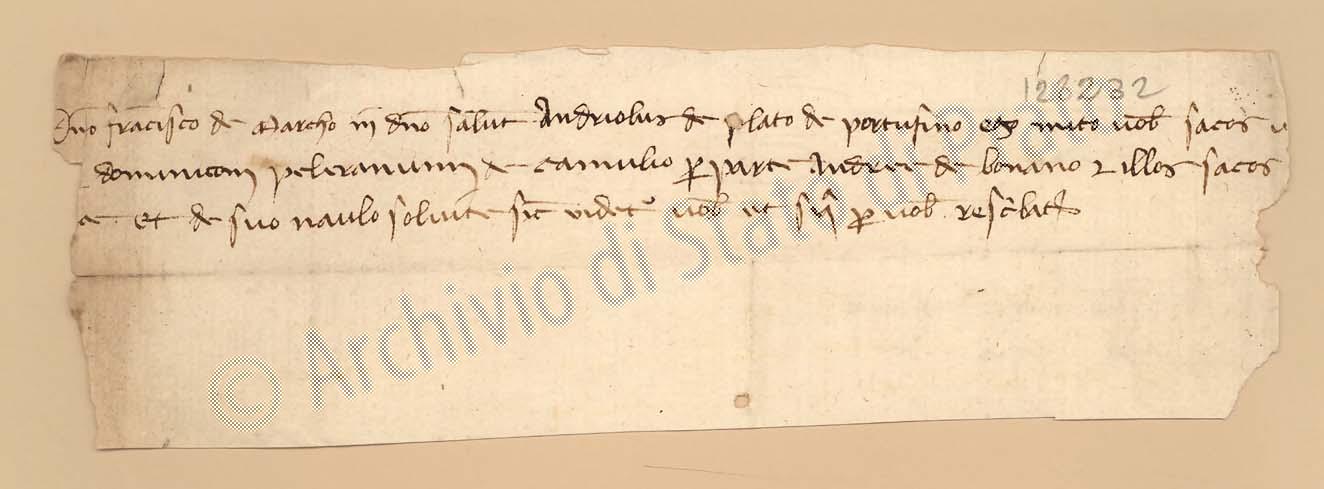 128232
Dno francisco de Marcho in dno salut Andriolus de plato de portufino ego mito vob sacos
dominicom peleranum de camulio per parte Andree de bonano illos sacos
Et de suo naulo solvite sic videt vob ut pro vob rescbat
© Archivio di Stato di Prato